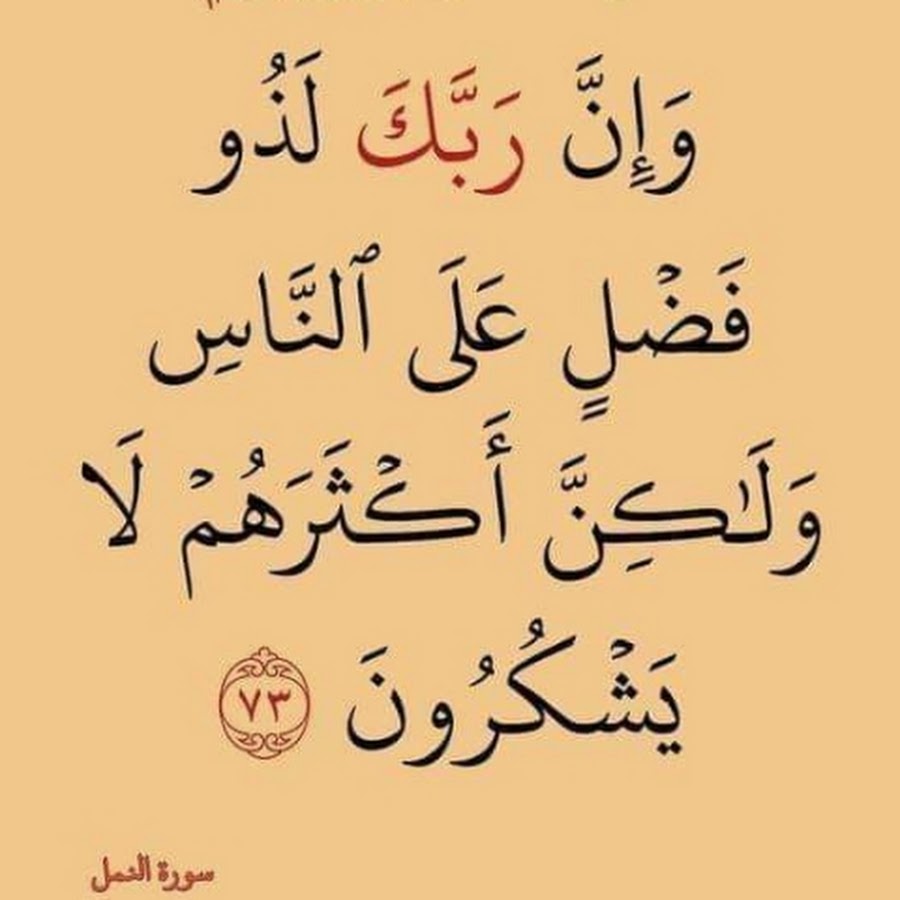 وَإِنَّ رَبَّكَ لَذُو
فَضْلٍ عَلَى ٱلنَّاسِ
وَلَٰكِنَّ أَكْثَرَهُمْ لَا
يَشْكُرُونَ ٧٣
سورة النمل